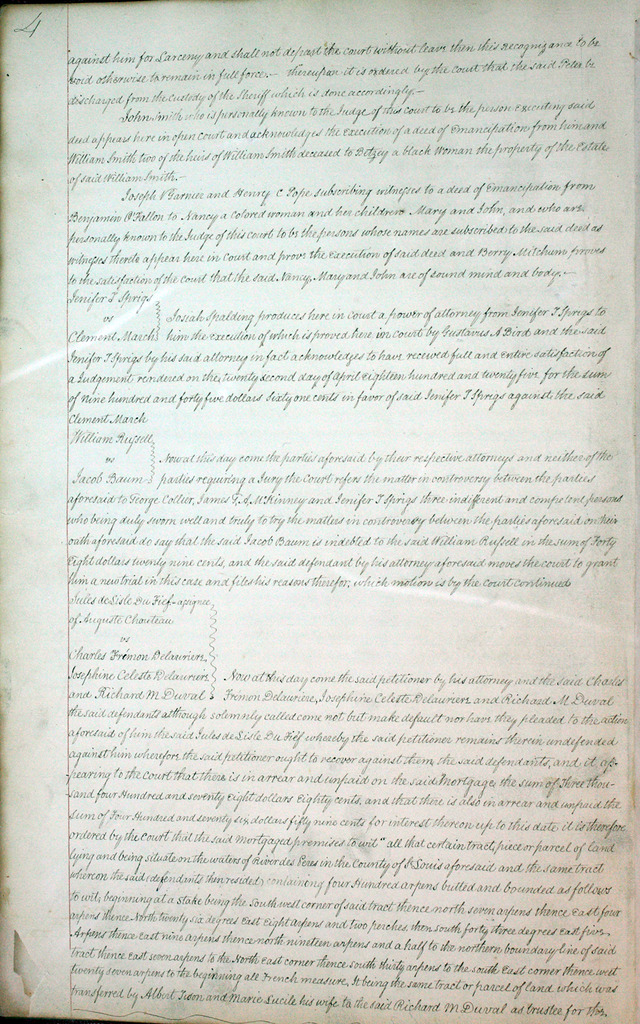 4
against him for Larceny and shall not depart the court without leave then this recognizance to be
void otherwise to remain in full force.– thereupon it is ordered by the Court that the said Peter be
discharged from the custody of the Sheriff which is done accordingly.–
John Smith who is personally known to the Judge of this Court to be the person executing said
deed appears here in open court and acknowledges the execution of a deed of Emancipation from him and
William Smith two of the heirs of William Smith deceased to Betsey a black Woman the property of the Estate
of said William Smith.–
Joseph V Garnier and Henry C Pope subscribing witnesses to a deed of Emancipation from
Benjamin O'Fallon to Nancy a colored woman and her children Mary and John, and who are
personally known to the Judge of this court to be the persons whose names are subscribed to the said deed as
witnesses thereto appear here in Court and prove the execution of said deed and Berry Mitchum proves
to the satisfaction of the court that the said Nancy, Mary and John are of sound mind and body.–
Jenifer T Sprigs
vs
Clement March
Josiah Spalding produces here in court a power of attorney from Jenifer T Sprigs to
him the execution of which is proved here in court by Gustavus A Bird and the said
Jenifer T Sprigs by his said attorney in fact acknowledges to have received full and entire satisfaction of
a Judgement rendered on the twenty second day of April Eighteen hundred and twenty five for the sum
of nine hundred and forty five dollars sixty one cents in favor of said Jenifer T Sprigs against the said
Clement March
William Russell
vs
Jacob Baum
Now at this day come the parties aforesaid by their respective attorneys and neither of the
parties requiring a Jury the Court refers the matter in controversy between the parties
aforesaid to George Collier, James F. A. McKinney and Jenifer T Sprigs three indifferent and competent persons
who being duly sworn well and truly to try the matters in controversy between the parties aforesaid on their
oath aforesaid do say that the said Jacob Baum is indebted to the said William Russell in the sum of Forty
Eight dollars twenty nine cents, and the said defendant by his attorney aforesaid moves the court to grant
him a new trial in this case and files his reasons therefor, which motion is by the court continued
Jules de Lisle Du Fief assignee
of Auguste Chouteau
vs
Charles Frémon Delauriere,
Josephine Celeste Delauriere
and Richard M. Duval
Now at this day come the said petitioner by his attorney and the said Charles
Frémon Delauriere, Josephine Celeste Delauriere and Richard M. Duval
the said defendants although solemnly called come not but make default nor have they pleaded to the action
aforesaid of him the said Jules de Lisle Du Fief whereby the said petitioner remains therein undefended
against him wherefore the said petitioner ought to recover against them the said defendants, and it ap-
-pearing to the Court that there is in arrear and unpaid on the said Mortgage the sum of Three thou-
-sand four Hundred and seventy Eight dollars Eighty cents, and that there is also in arrear and unpaid the
sum of Four Hundred and seventy six dollars fifty nine cents for interest thereon up to this date it is therefore
ordered by the Court that the said Mortgaged premises to wit "all that certain tract, piece or parcel of land
lying and being situate on the waters of River des Peres in the County of St Louis aforesaid and the same tract
whereon the said defendants then resided, containing four Hundred arpens butted and bounded as follows
to wit, beginning at a stake being the South west corner of said tract thence north seven arpens thence East four
arpens thence North twenty six degrees East Eight arpens and two perches then south forty three degrees east five
Arpens thence east nine arpens thence north nineteen arpens and a half to the northern boundary line of said
tract thence east seven arpens to the North East corner thence south thirty arpens to the south East corner thence west
twenty seven arpens to the beginning all French measure, It being the same tract or parcel of land which was
transferred by Albert Tison and Marie Lucile his wife to the said Richard M. Duval as trustee for the